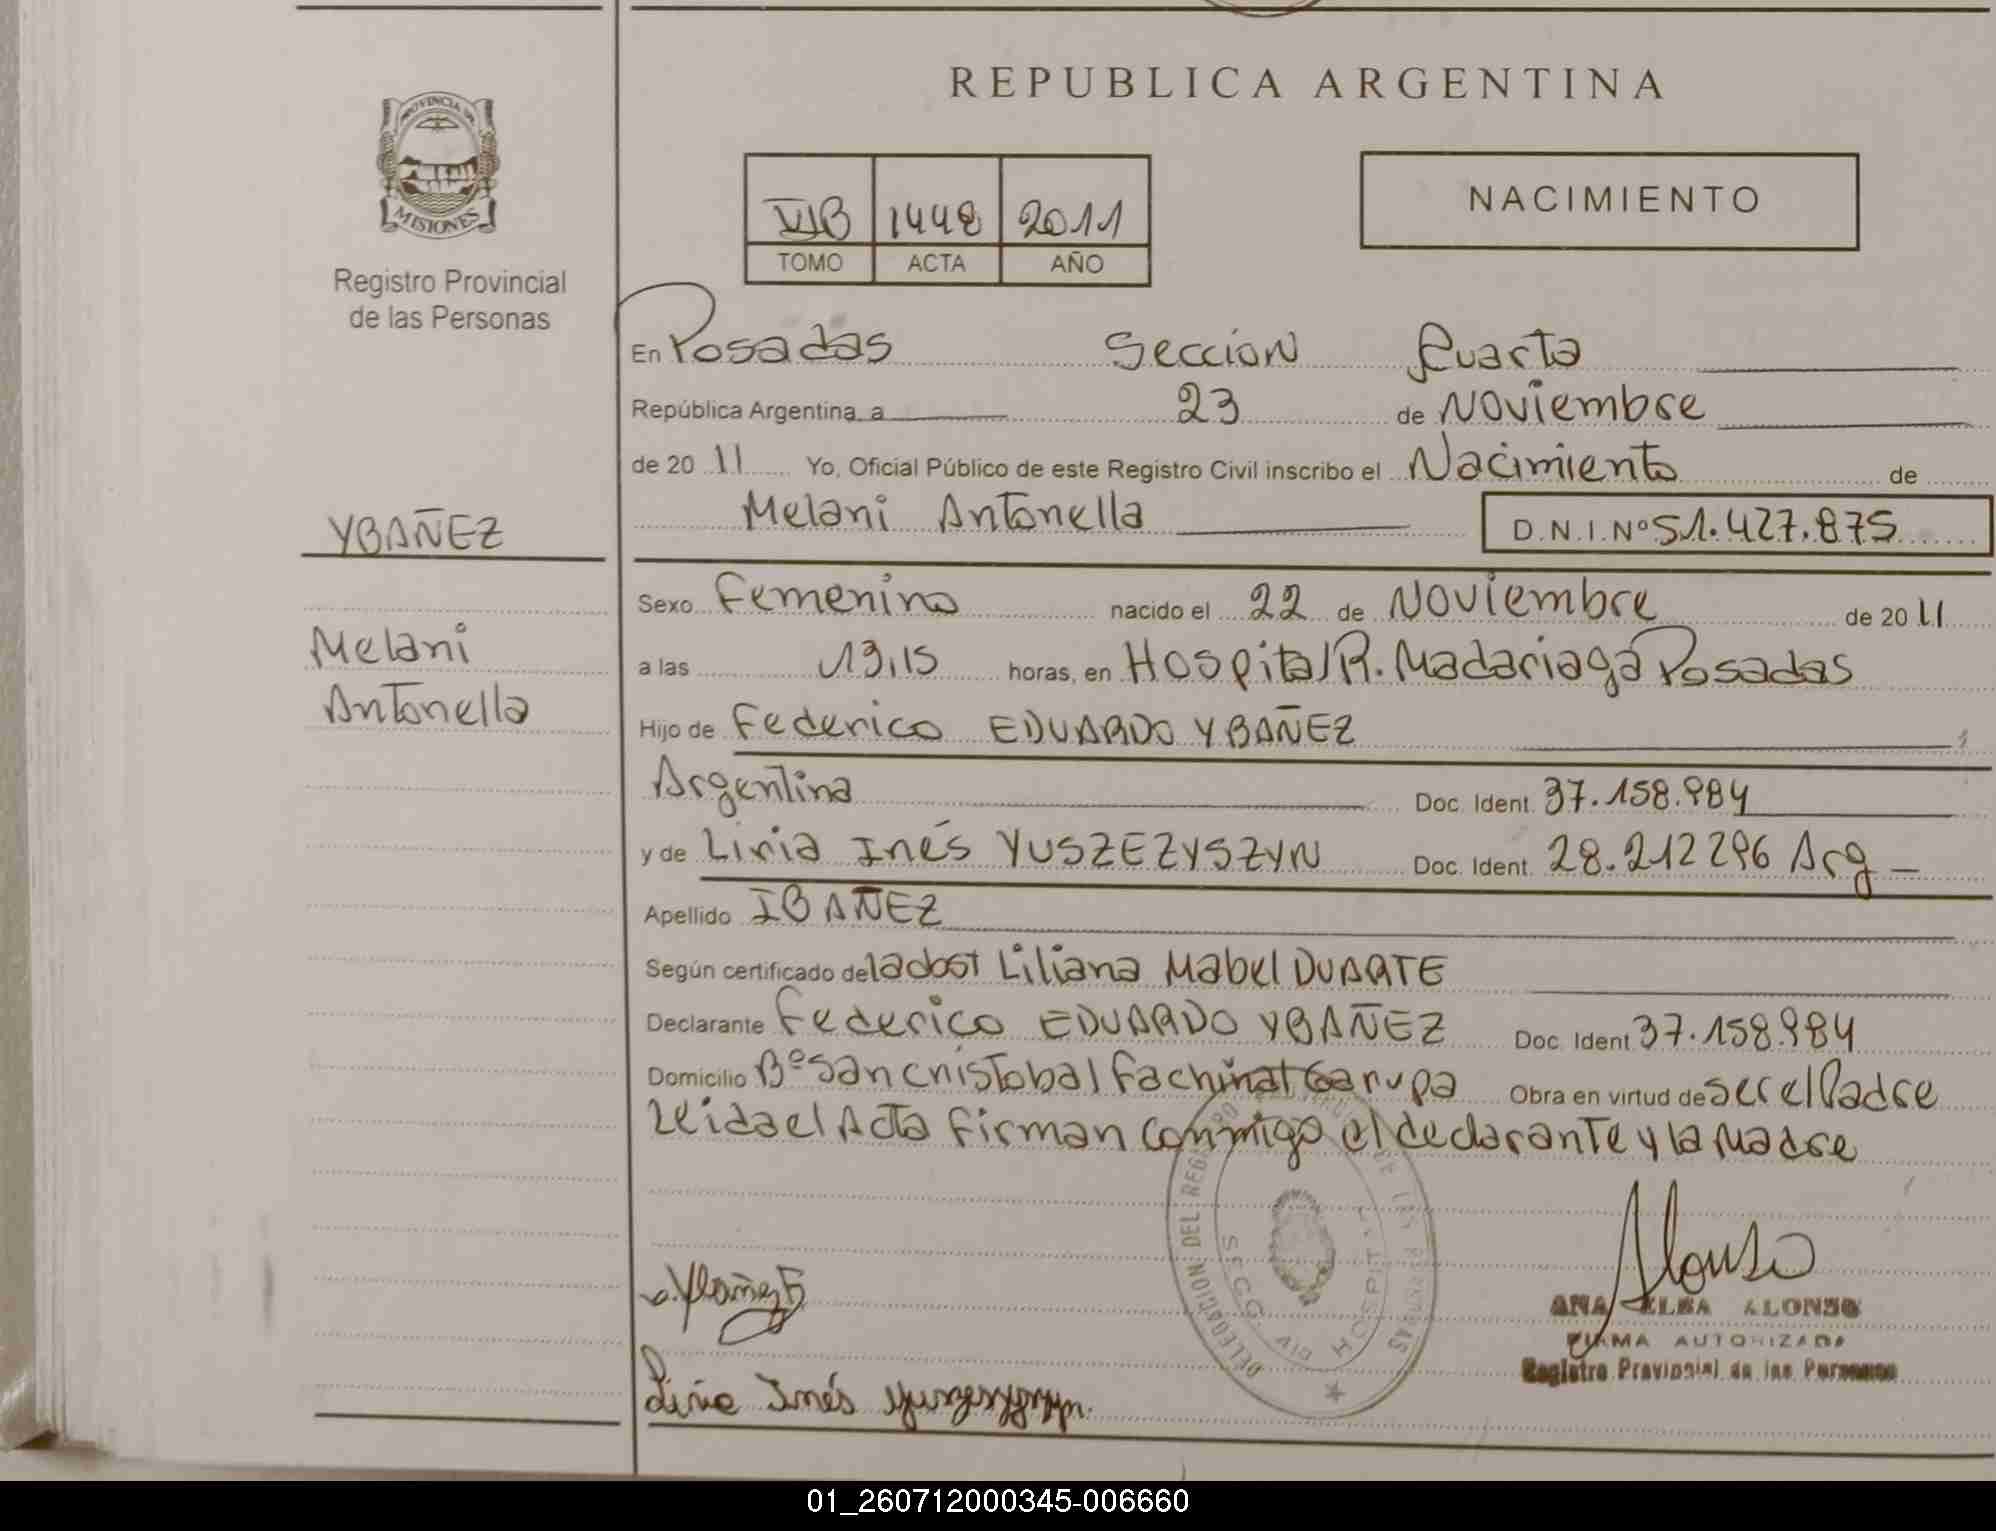 REPUBLICA ARGENTINA
PROVINCIA DE
MISIONES
Registro Provincial
de las Personas
VIB 1448 2011
TOMO ACTA AÑO
NACIMIENTO
En Posadas Seccion Cuarta
República Argentina, a 23 de Noviembre
de 2011 Yo, Oficial Público de este Registro Civil inscribo el Nacimiento de
Melani Antonella D.N.I.Nº 51.427.875
YBAÑEZ
Melani
Antonella
Sexo Femenino nacido el 22 de Noviembre de 2011
a las 13,15 horas, en Hospital R. Madariaga Posadas
Hijo de Federico EDUARDO YBAÑEZ
Argentina Doc. Ident. 37.158.984
y de Liria Inés YUSZEZYSZYN Doc. Ident. 28.212296 Arg
Apellido IBAÑEZ
Según certificado de la obst Liliana Mabel DUARTE
Declarante Federico EDUARDO YBAÑEZ Doc. Ident 37.158.984
Domicilio Bº San Cristobal Fachinal Garupa Obra en virtud de ser el Padre
Leida el Acta Firman conmigo el declarante y la Madre
DELEGACION DEL REGISTRO DE LAS PERSONAS
SECC HOSPIT
Ybañez F
Liria Inés
Alonso
ANA ELBA ALONSO
FIRMA AUTORIZADA
Registro Provincial de las Personas
01_260712000345-006660